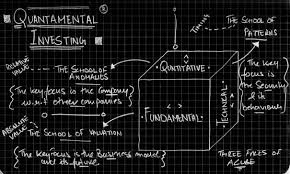 QUANTAMENTAL
INVESTING
TIMING
THE SCHOOL OF
PATTERNS
RELATIVE
VALUE
THE SCHOOL OF
ANOMALIES
{The key focus is the company
w.r.t other companies}
ABSOLUTE
VALUE
THE SCHOOL OF VALUATION
{The key focus is the business model
and its future}
QUANTITATIVE
FUNDAMENTAL
TECHNICAL
{The key
focus is
the security
& its
behaviour}
THREE FACES OF
A CUBE